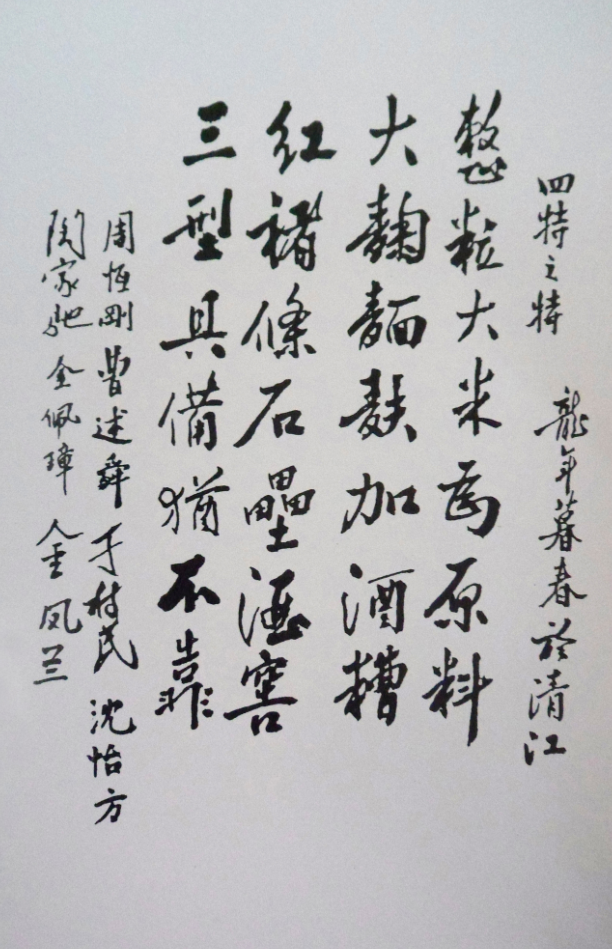 四特之特 龍年暮春於清江
整粒大米為原料
大麯麵麩加酒糟
红褚條石壘酒窖
三型具備猶不靠
周恆剛 曹述舜 于树民 沈怡方
陶家驰 金佩璋 金凤兰